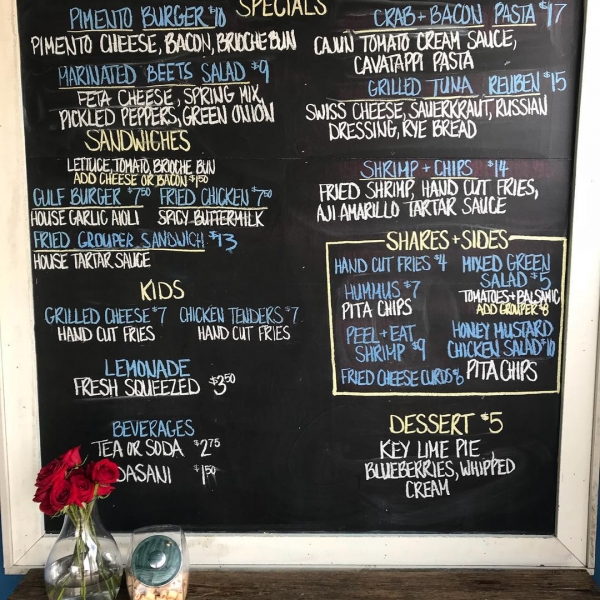 SPECIALS
PIMENTO BURGER $10
PIMENTO CHEESE, BACON, BRIOCHE BUN
MARINATED BEETS SALAD $9
FETA CHEESE, SPRING MIX,
PICKLED PEPPERS, GREEN ONION
CRAB + BACON PASTA $17
CAJUN TOMATO CREAM SAUCE,
CAVATAPPI PASTA
GRILLED TUNA REUBEN $15
SWISS CHEESE, SAUERKRAUT, RUSSIAN
DRESSING, RYE BREAD
SHRIMP + CHIPS $14
FRIED SHRIMP, HAND CUT FRIES,
AJI AMARILLO TARTAR SAUCE
SANDWICHES
LETTUCE, TOMATO, BRIOCHE BUN
ADD CHEESE OR BACON $1.50
GULF BURGER $7.50
HOUSE GARLIC AIOLI
FRIED CHICKEN $7.50
SPICY BUTTERMILK
FRIED GROUPER SANDWICH $13
HOUSE TARTAR SAUCE
KIDS
GRILLED CHEESE $7
HAND CUT FRIES
CHICKEN TENDERS $7
HAND CUT FRIES
LEMONADE
FRESH SQUEEZED $3.50
BEVERAGES
TEA OR SODA $2.75
DASANI $1.50
SHARES + SIDES
HAND CUT FRIES $4
HUMMUS $7
PITA CHIPS
PEEL + EAT
SHRIMP $9
FRIED CHEESE CURDS $6
MIXED GREEN
SALAD $5
TOMATOES + BALSAMIC
ADD GROUPER $8
HONEY MUSTARD
CHICKEN SALAD $10
PITA CHIPS
DESSERT $5
KEY LIME PIE,
BLUEBERRIES, WHIPPED
CREAM